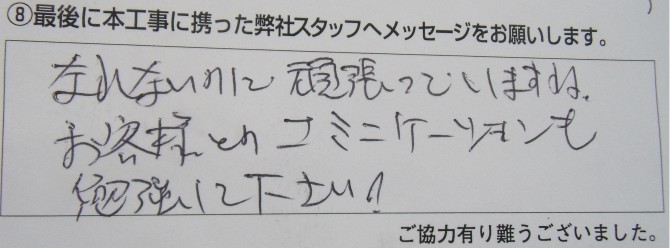 ⑧最後に本工事に携った弊社スタッフへメッセージをお願いします。
なれないのに頑張っていますね。
お客様とのコミニケーションも
勉強して下さい!
ご協力有り難うございました。